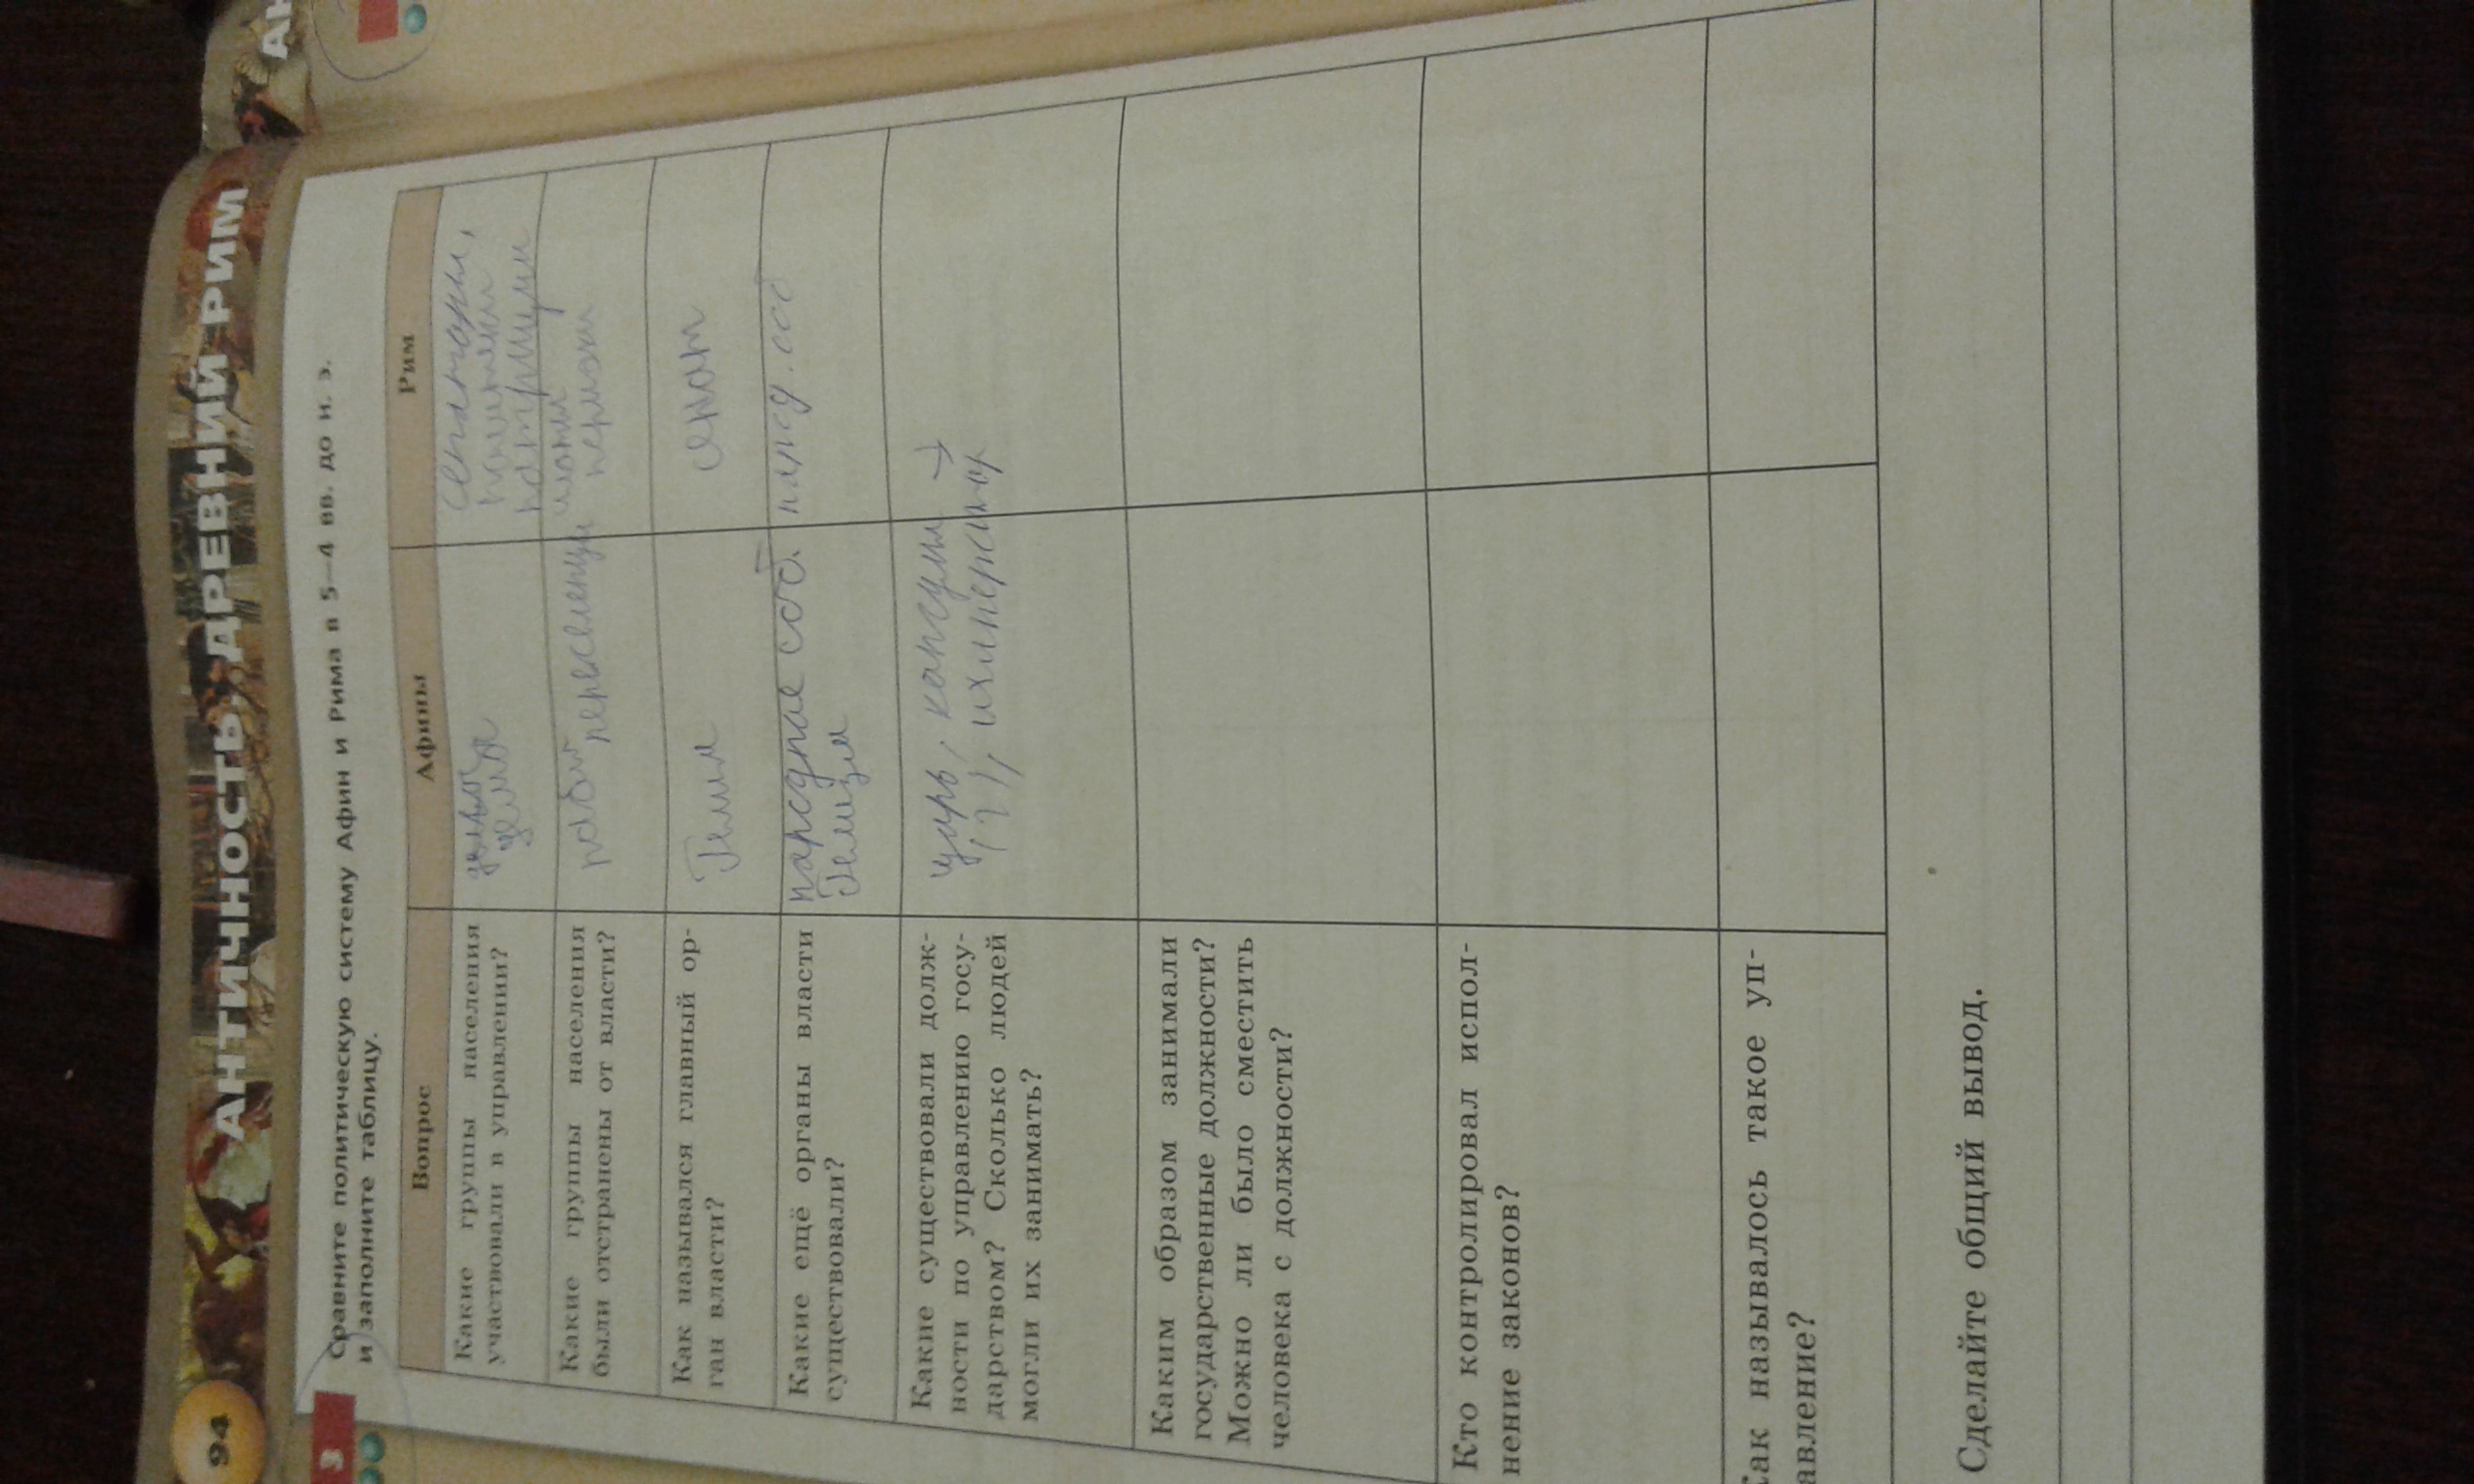 94
АНТИЧНОСТЬ. ДРЕВНИЙ РИМ
АН
3
Сравните политическую систему Афин и Рима в 5—4 вв. до н. э.
и заполните таблицу.
Вопрос
Афины
Рим
Какие группы населения
участвовали в управлении?
сенаторы,
патриции
Какие группы населения
были отстранены от власти?
рабы
переселенцы
Как назывался главный ор-
ган власти?
сенат
Какие ещё органы власти
существовали?
народное соб.
народ. соб
Какие существовали долж-
ности по управлению госу-
дарством? Сколько людей
могли их занимать?
царь, консулы →
император
Каким образом занимали
государственные должности?
Можно ли было сместить
человека с должности?
Кто контролировал испол-
нение законов?
Как называлось такое уп-
авление?
Сделайте общий вывод.